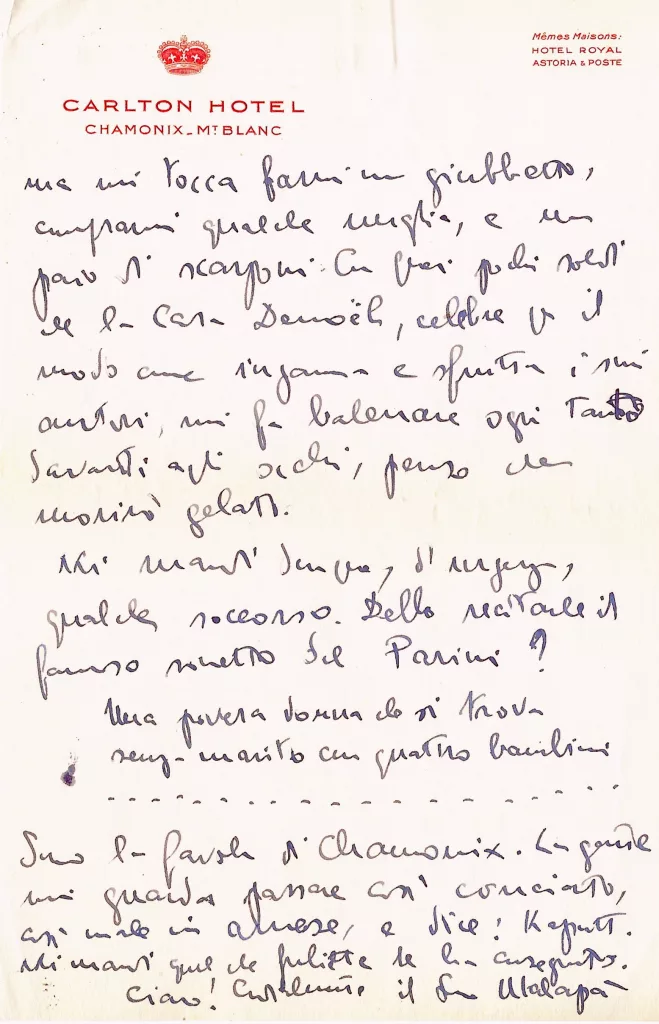 CARLTON HOTEL
CHAMONIX_MT BLANC
Mêmes Maisons:
HOTEL ROYAL
ASTORIA & POSTE
ma mi tocca farmi un giubbetto,
comprarmi qualche maglia, e un
paio di scarponi. Con quei pochi soldi
che la Casa Denoël, celebre per il
modo come inganna e sfrutta i suoi
autori, mi fa balenare ogni tanto
davanti agli occhi, penso che
morirò gelato.
Mi mandi dunque, d'urgenza,
qualche soccorso. Debbo recitarle il
famoso sonetto del Parini?
Una povera donna che si trova
senza marito con quattro bambini
Sono la favola di Chamonix. La gente
mi guarda passare così conciato,
così male in arnese, e dice: Kaputt.
Mi mandi quel che Juliette le ha consegnato.
Ciao! Cordialmente il Suo Malapà